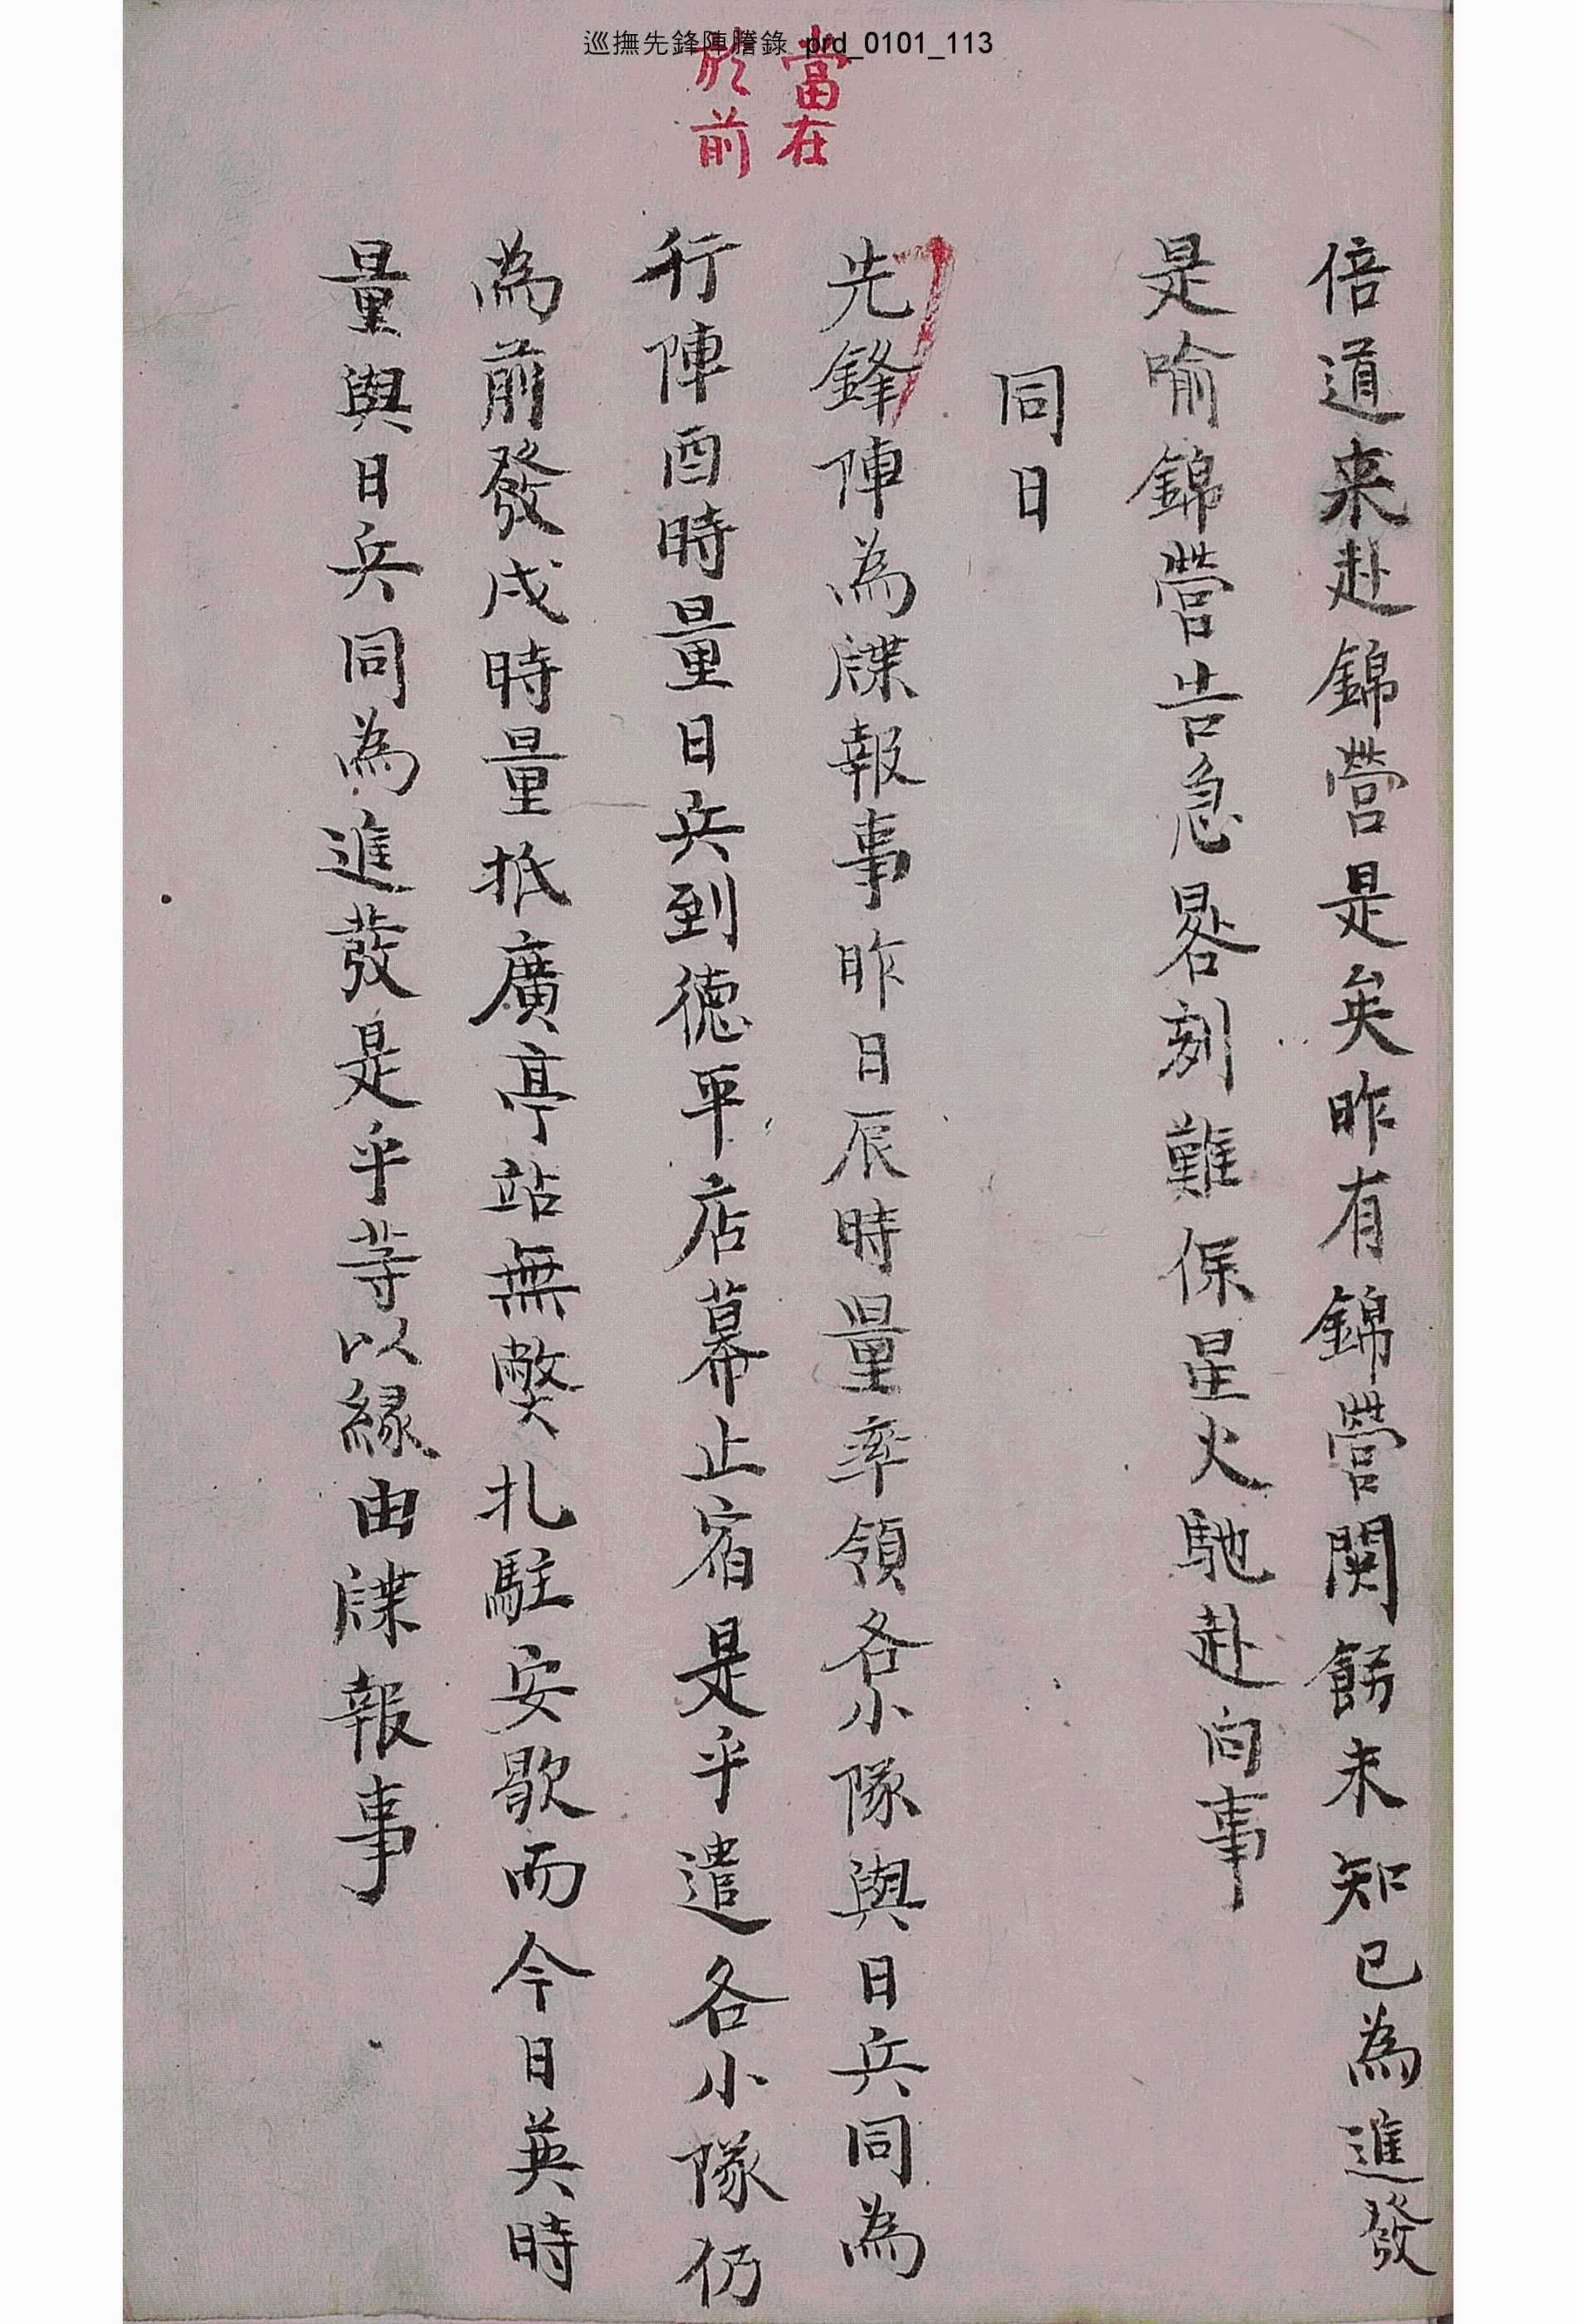 巡撫先鋒陣謄錄 prd_0101_113
當在
於前
倍道来赴錦營是矣昨有錦營関餙未知已為進發
是喻錦營告急晷刻難保星火馳赴向事
同日
先鋒陣為牒報事昨日辰時量率領各小隊與日兵同為
行陣酉時量日兵到德平店幕止宿是乎遣各小隊仍
為前發戌時量抵廣亭站無弊札駐安歇而今日英時
量與日兵同為進發是乎等以緣由牒報事